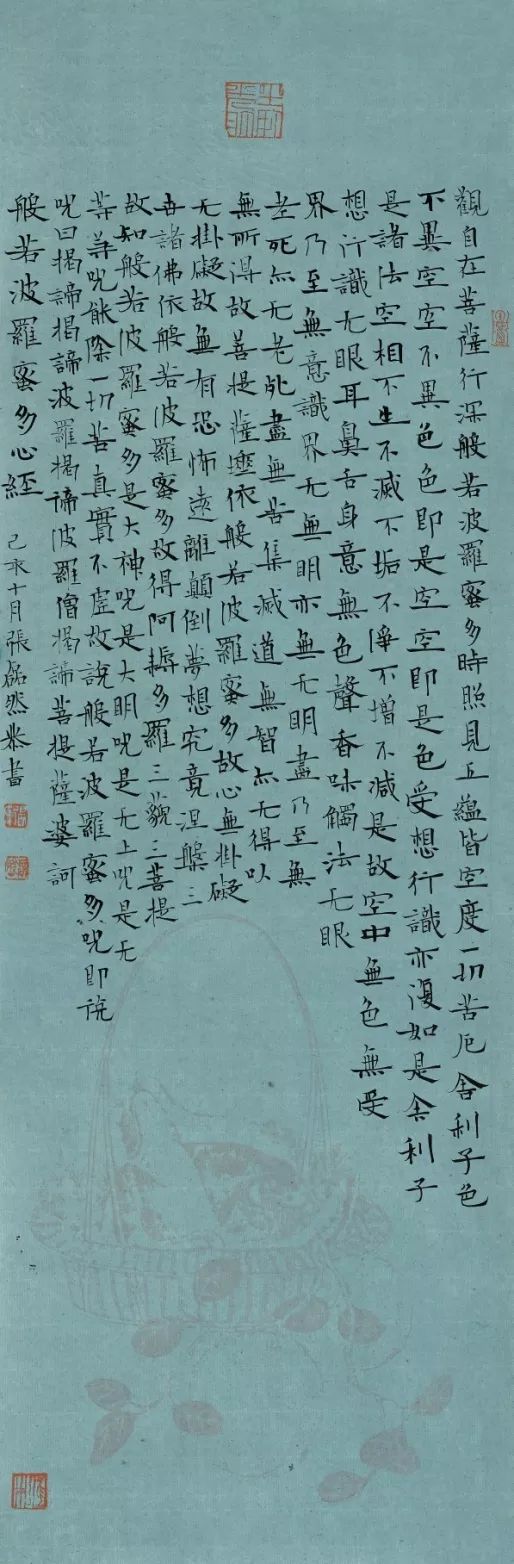 觀自在菩薩行深般若波羅蜜多時照見五蘊皆空度一切苦厄舍利子色
不異空空不異色色即是空空即是色受想行識亦復如是舍利子
是諸法空相不生不滅不垢不淨不增不減是故空中無色無受
想行識无眼耳鼻舌身意無色聲香味觸法无眼
界乃至無意識界无無明亦無无明盡乃至無
老死亦无老死盡無苦集滅道無智亦无得以
無所得故菩提薩埵依般若波羅蜜多故心無掛礙
无掛礙故無有恐怖遠離顛倒夢想究竟涅槃三
世諸佛依般若波羅蜜多故得阿耨多羅三藐三菩提
故知般若波羅蜜多是大神咒是大明咒是无上咒是无
等等咒能除一切苦真實不虛故說般若波羅蜜多咒即說
咒曰揭諦揭諦波羅揭諦波羅僧揭諦菩提薩婆訶
般若波羅蜜多心經 己亥十月張磊然恭書